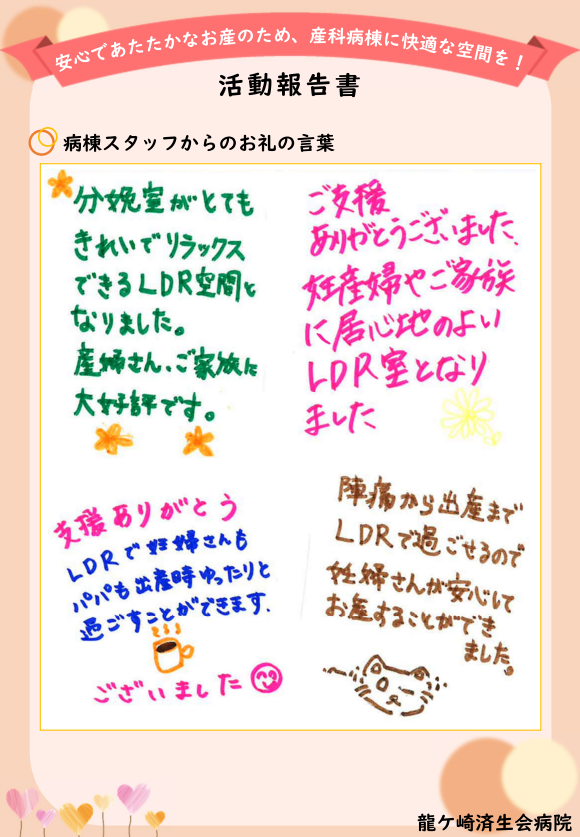 安心であたたかなお産のため、産科病棟に快適な空間を！
活動報告書
病棟スタッフからのお礼の言葉
分娩室がとても
きれいでリラックス
できるLDR空間と
なりました。
産婦さん、ご家族に
大好評です。
ご支援
ありがとうございました、
妊産婦やご家族
に居心地のよい
LDR室となり
ました
支援ありがとう
LDRで妊婦さんも
パパも出産時ゆったりと
過ごすことができます、
ございました
陣痛から出産まで
LDRで過ごせるので
妊婦さんが安心して
お産することができ
ました。
龍ケ崎済生会病院